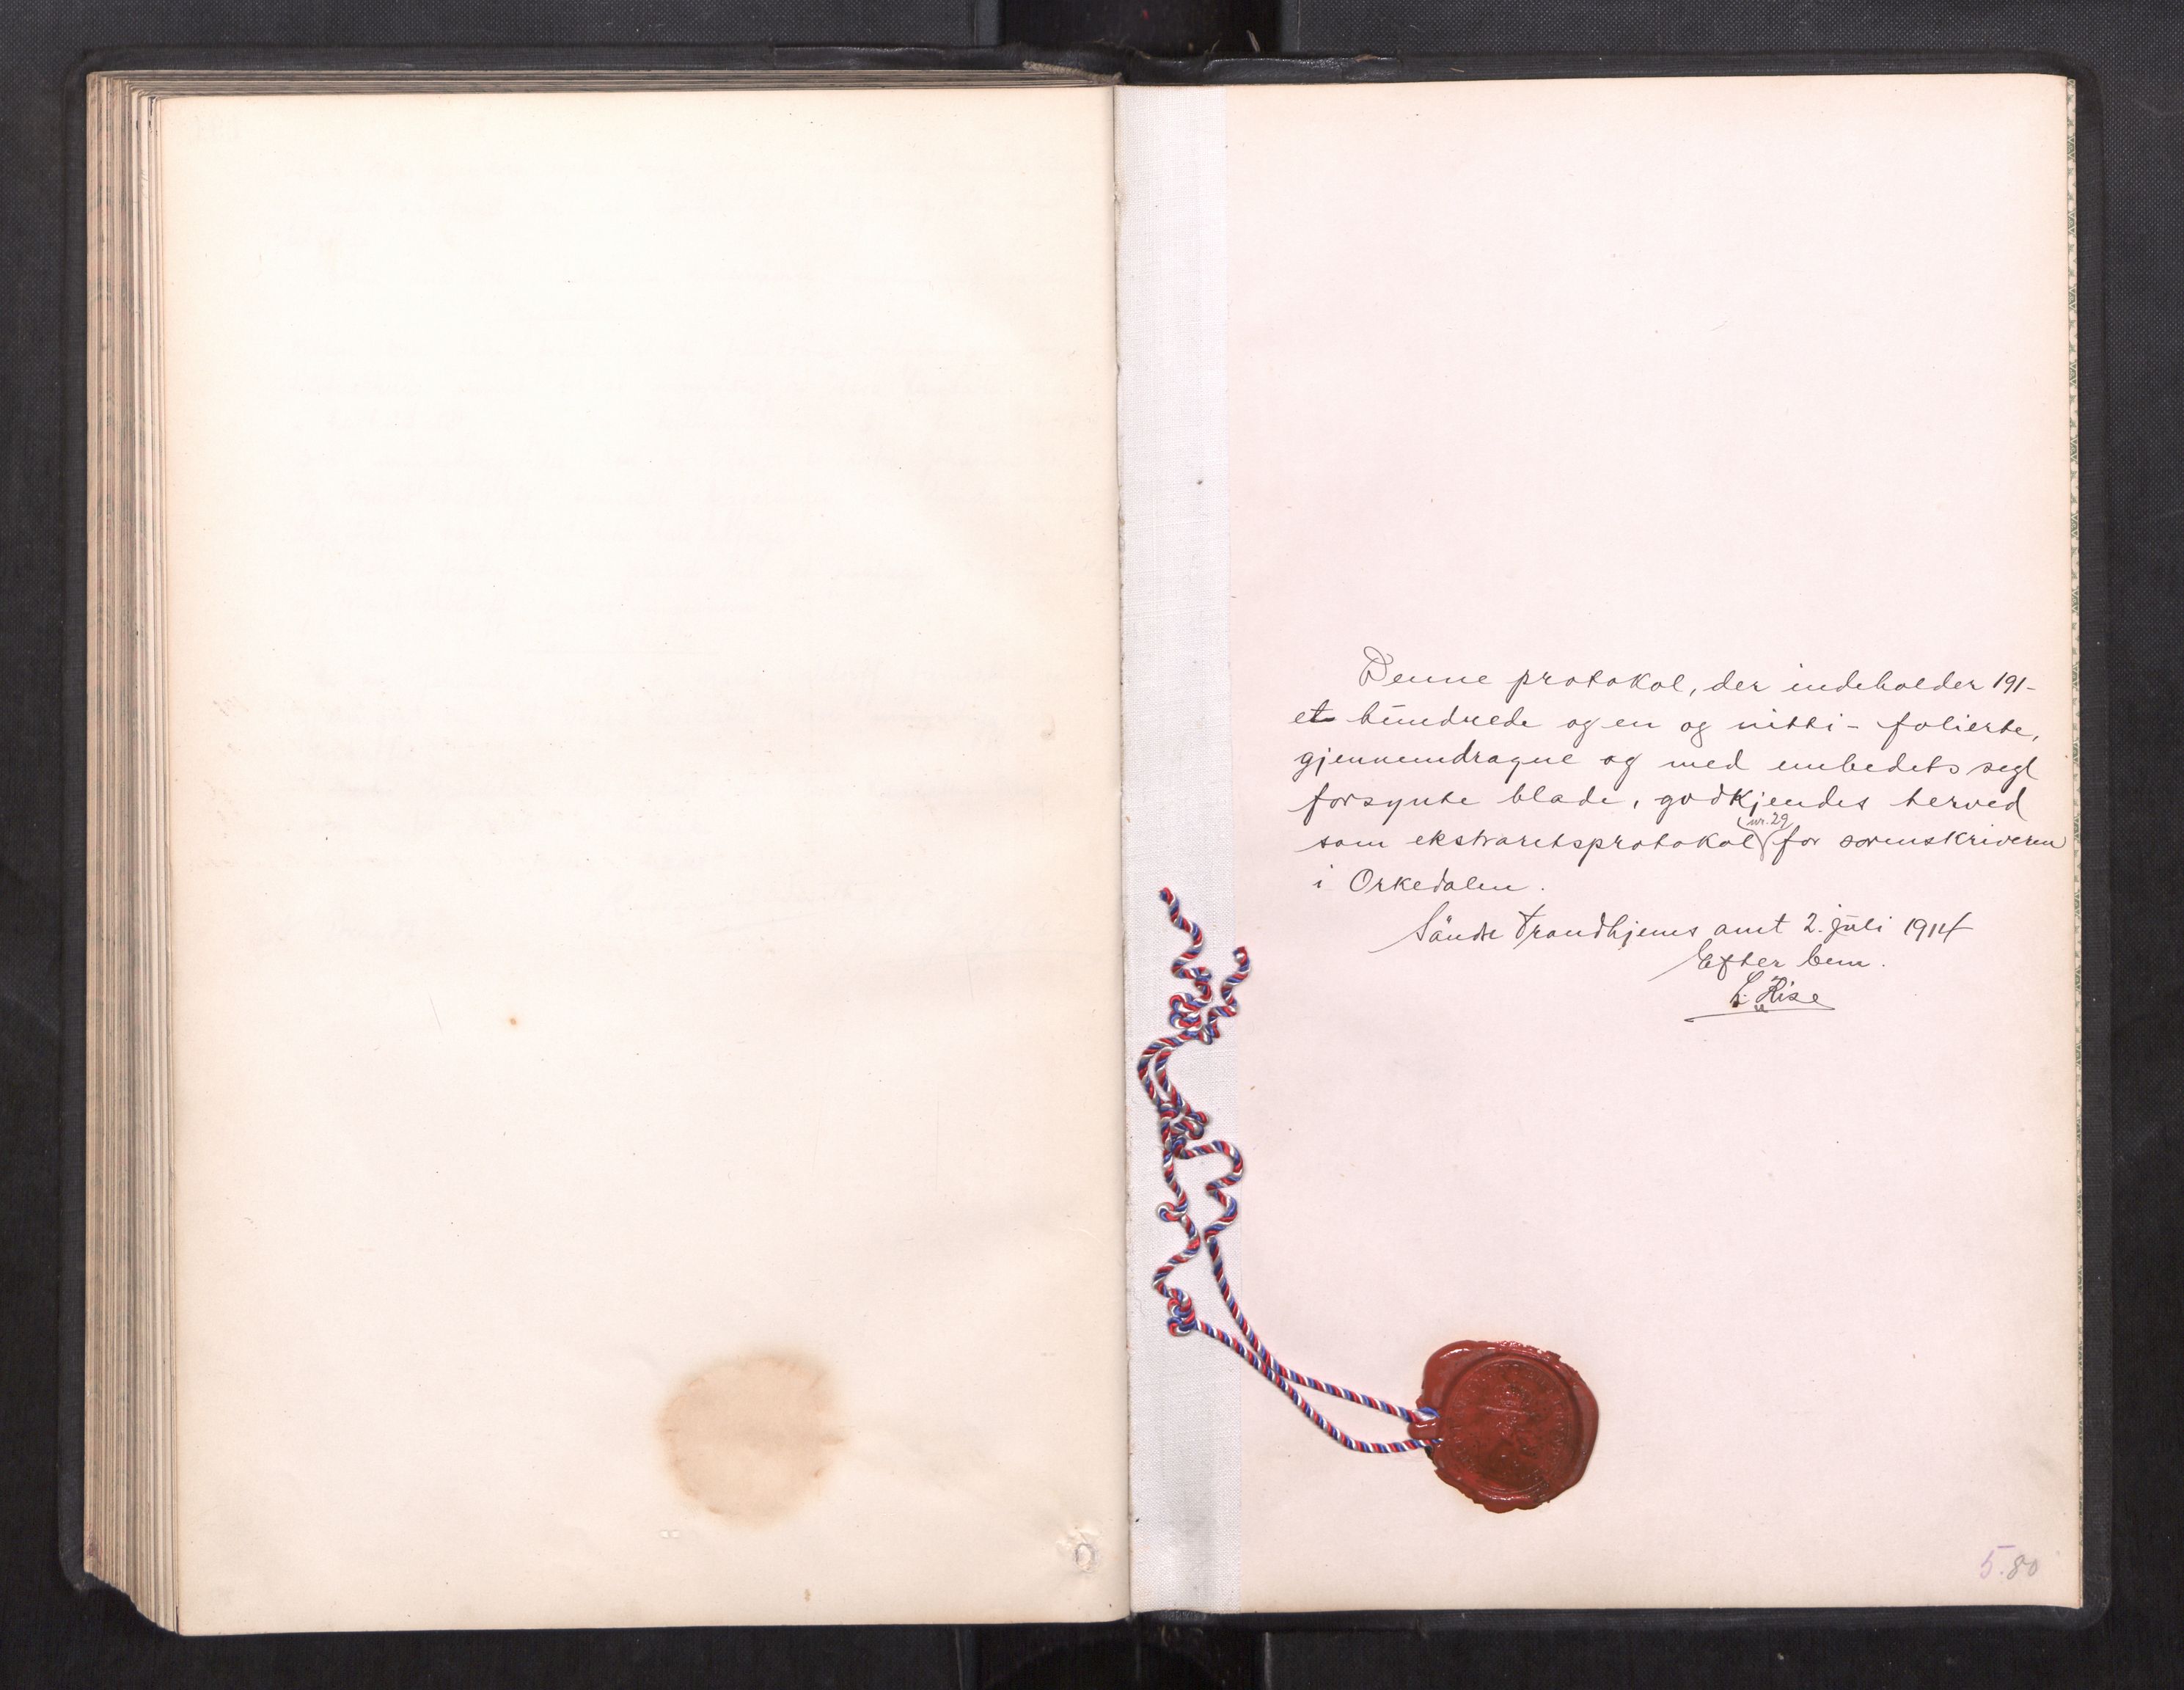 Denne protokol, der indeholder 191-
et hundrede og en og nitti - folierte,
gjennemdragne og med embedets segl
forsynte blade, godkjendes herved
som ekstraretsprotokol nr. 29 for sorenskriveren
i Orkedalen.
Søndre Trondhjems amt 2. juli 1914
Efter bem.
L. Rise
5.80